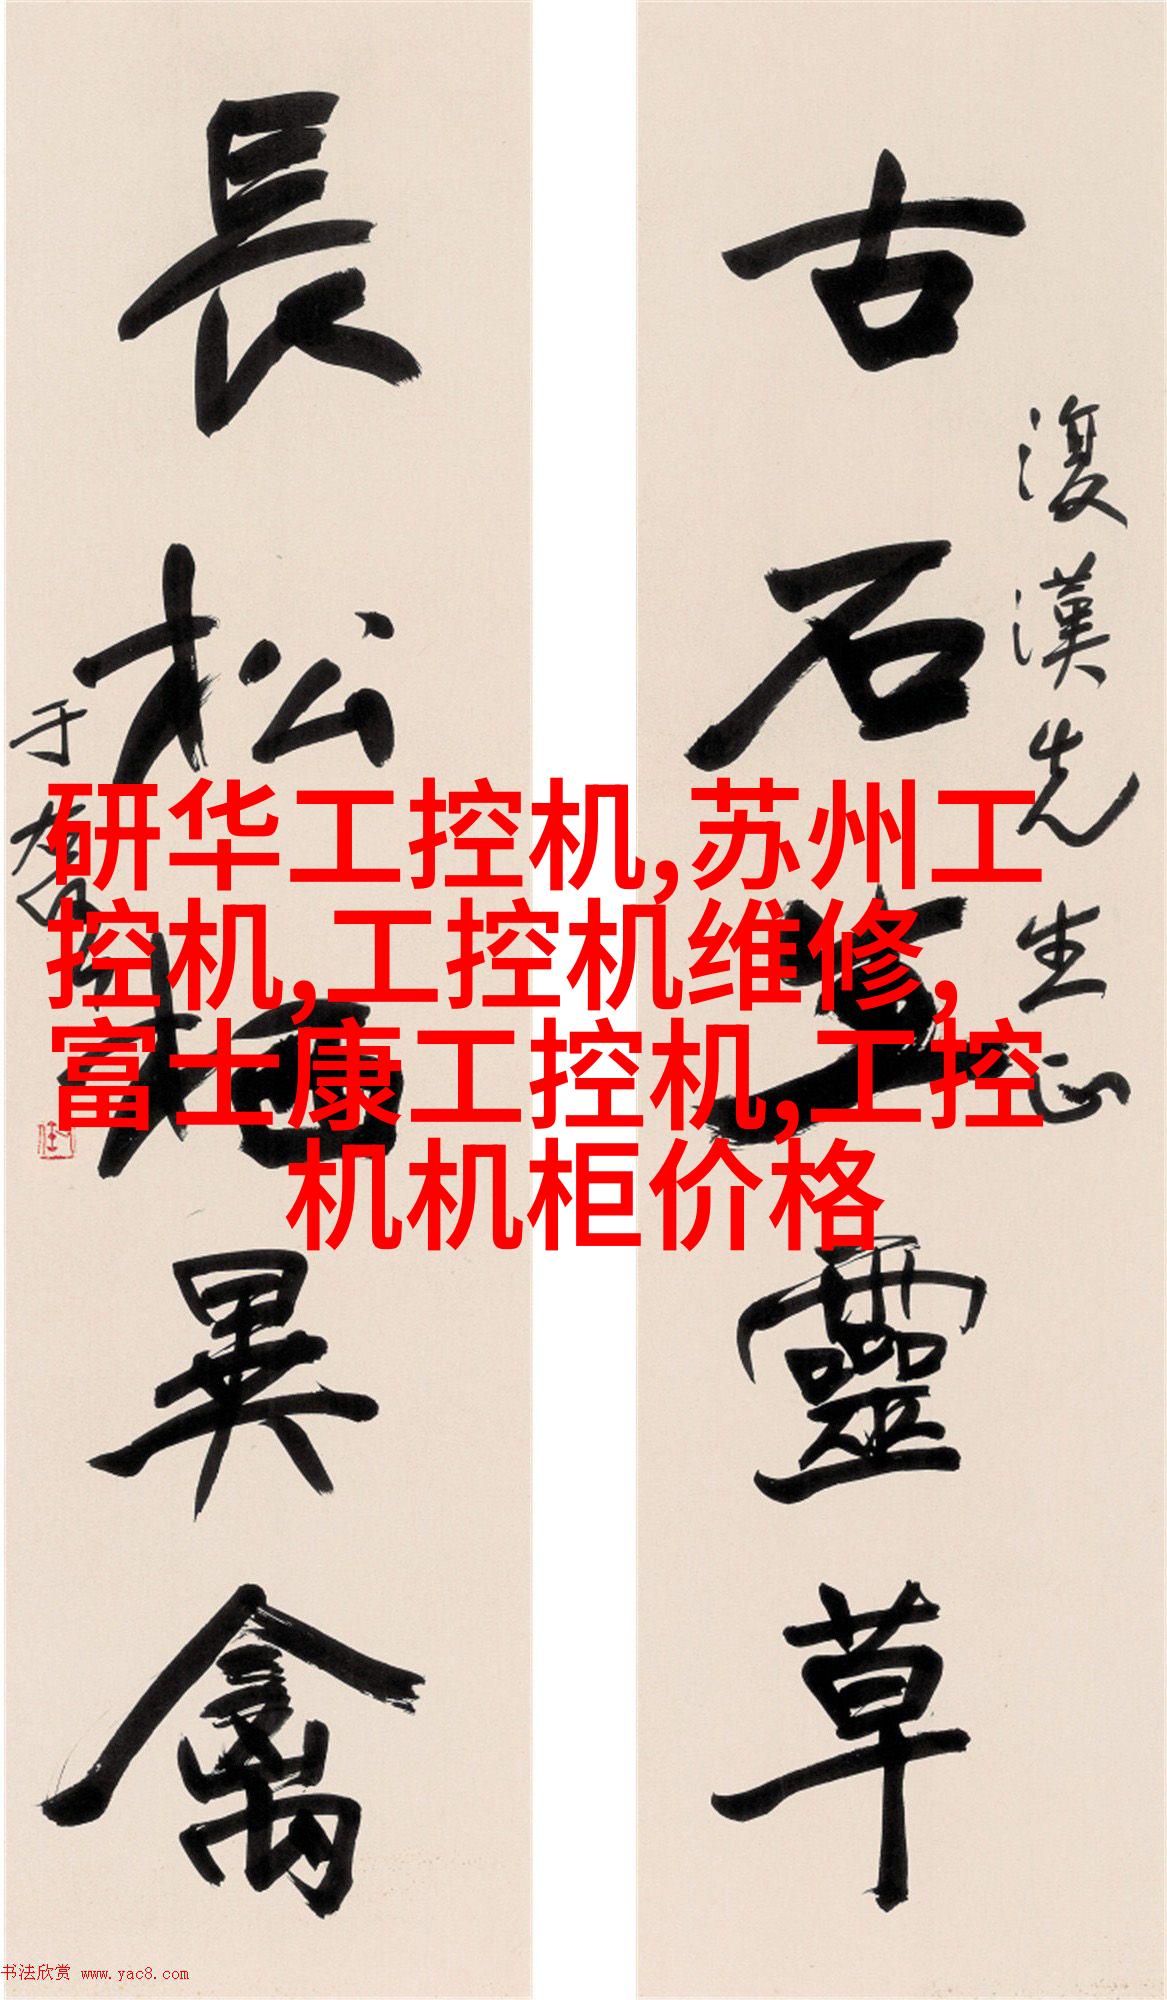 復漢先生正
古石生靈草
長松栖異禽
于右任
研华工控机,苏州工
控机,工控机维修,
富士康工控机,工控
机机柜价格
书法欣赏 www.yac8.com